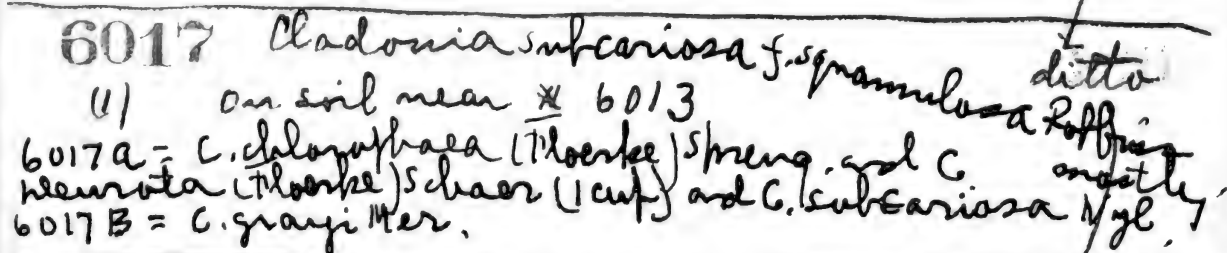 6017 Cladonia subcariosa f. squamulosa Robbins ditto
(1) on soil near # 6013
6017a = C. chlorophaea (Floerke) Spreng. and C. mostly
(Floerke) Schaer (1 cup) and C. subcariosa Nyl.
6017B = C. grayi Mer.